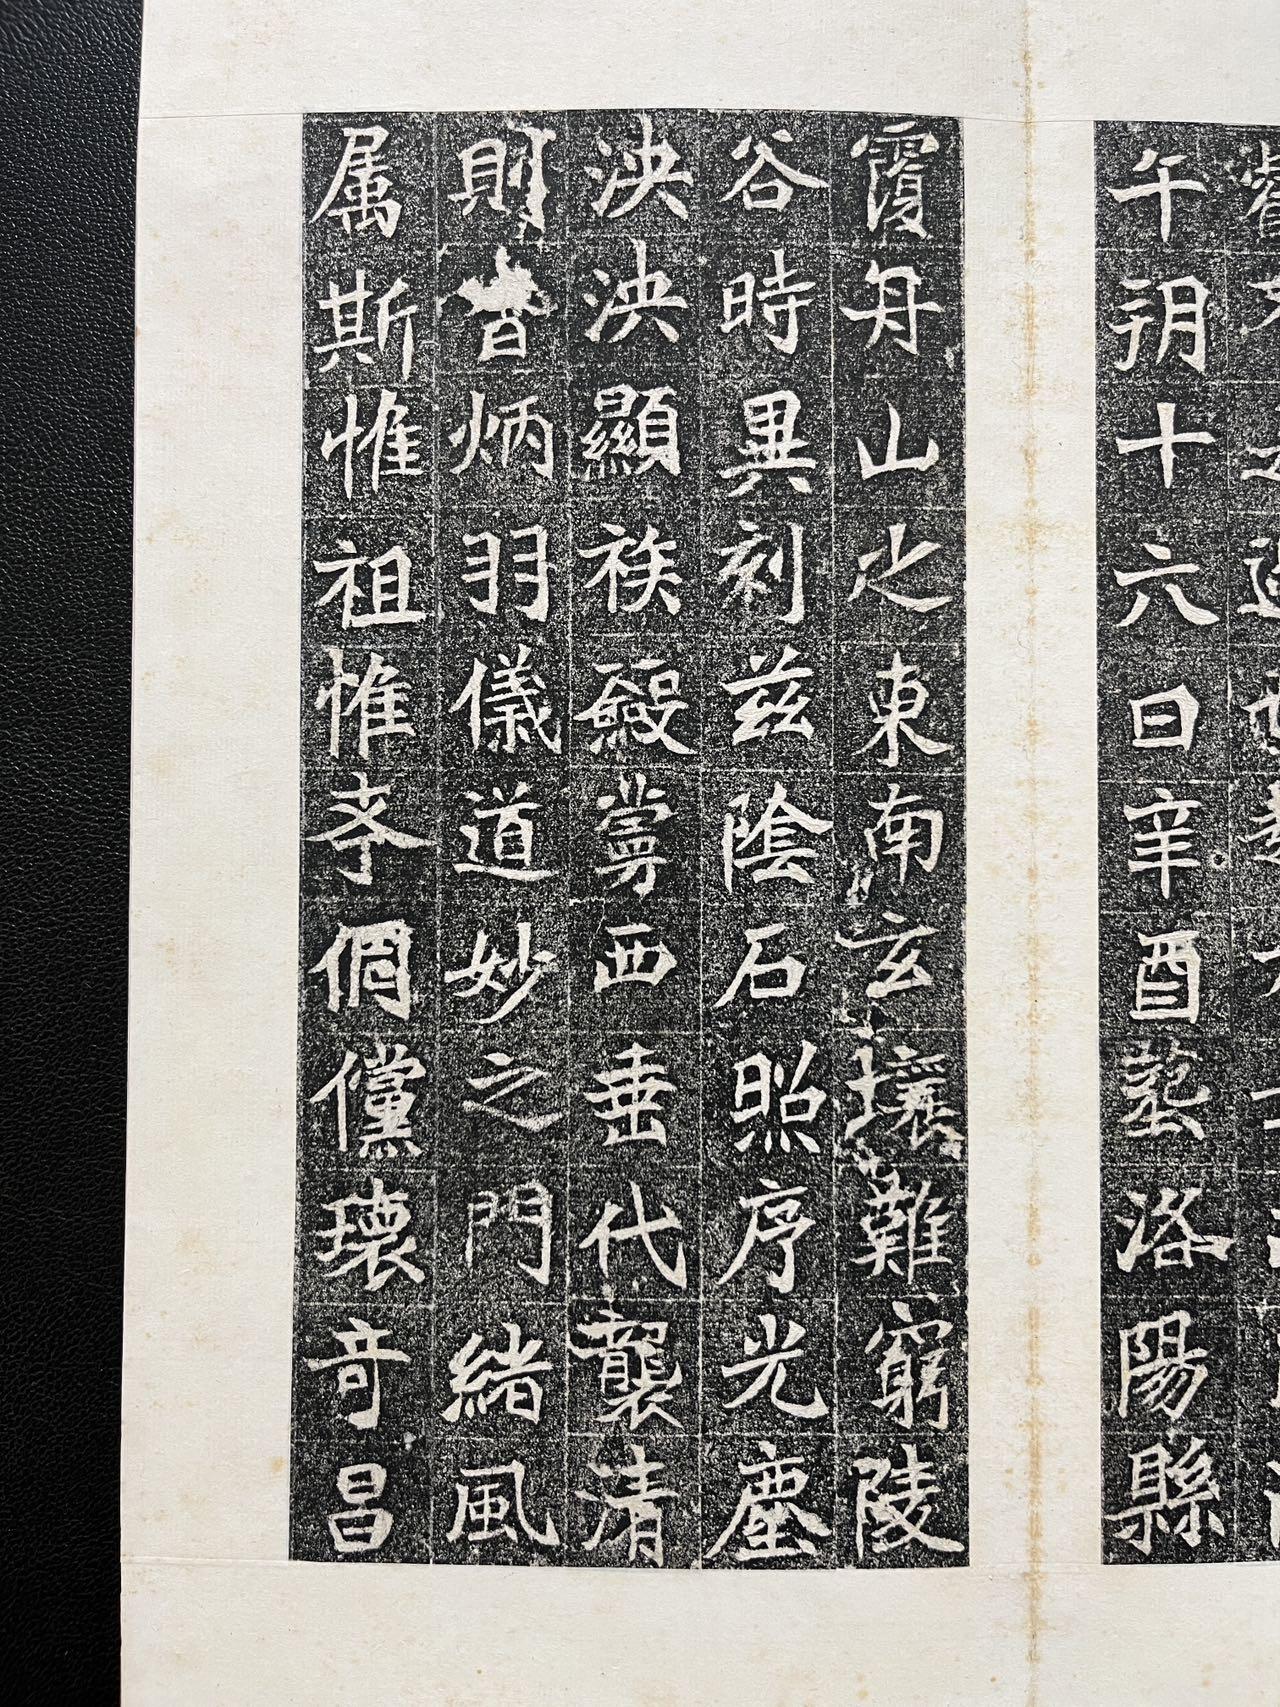 午朔十六日辛酉塟洛陽縣
覆舟山之東南玄壤難窮陵
谷時異刻兹陰石照序光塵
泱泱顯族西垂代襲清
則昔炳羽儀道妙之門緒風
属斯惟祖惟考倜儻瓌奇昌